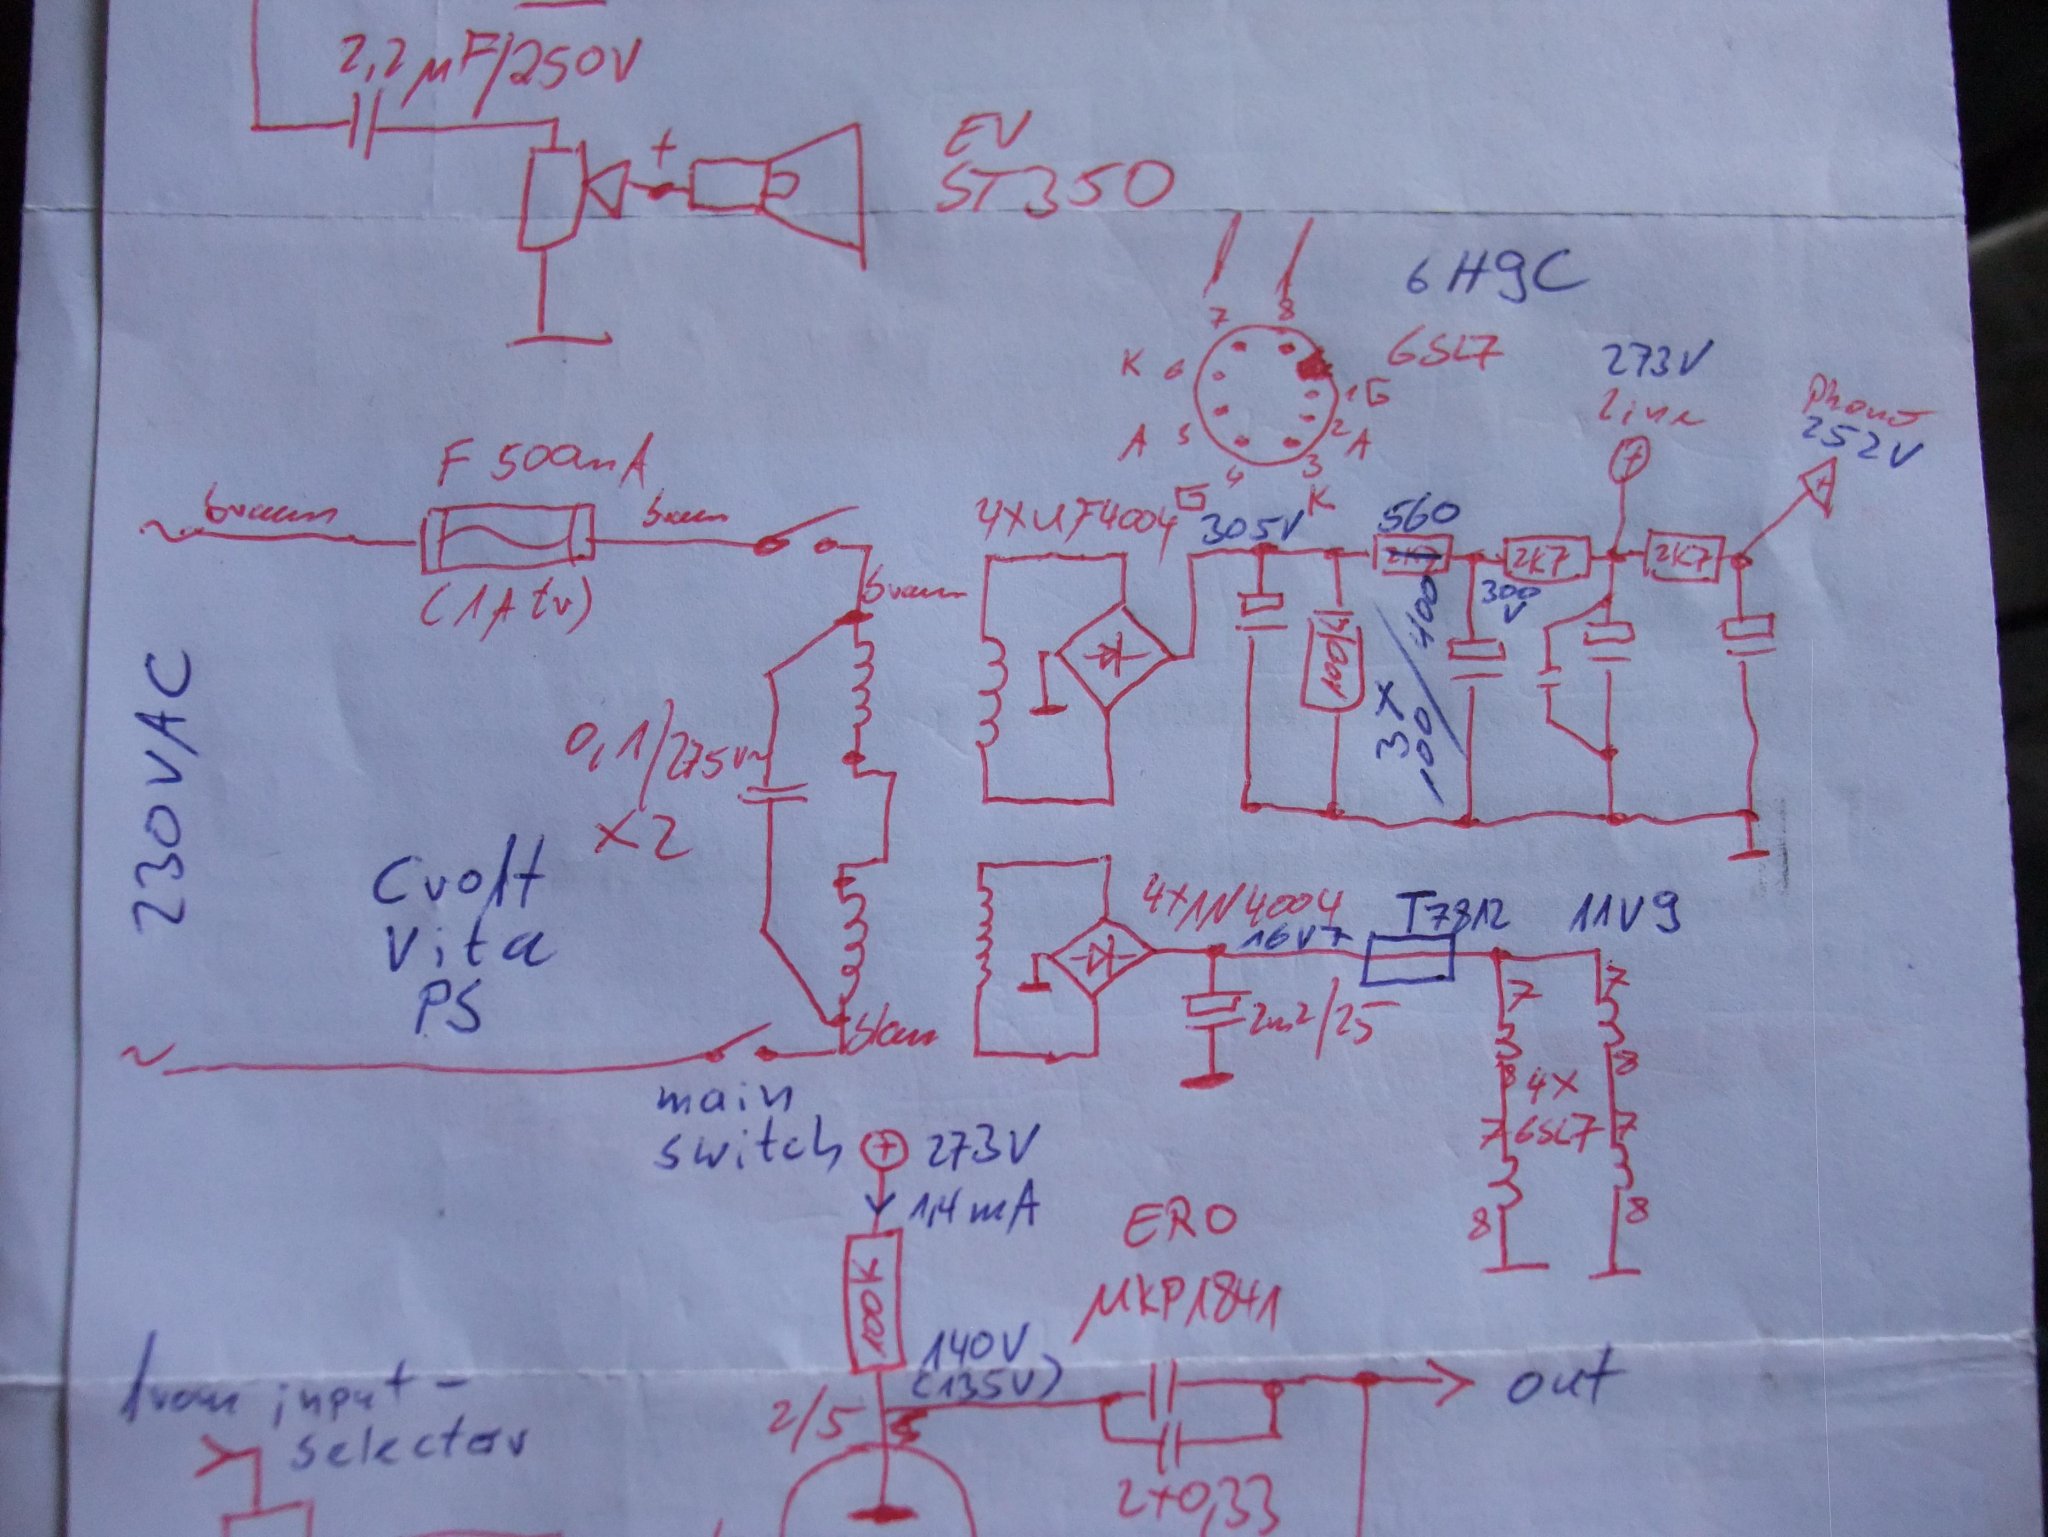 2,2µF/250V
+
EV
ST350
6H9C
6SL7
7
8
K 6
1 G
A 5
2 A
4
G
3
K
273V
Line
+
Phono
252V
+
F 500mA
braun
braun
(1A tr)
braun
230VAC
0,1/275V~
X2
Cvolt
Vita
PS
blau
main
switch
4XUF4004
305V
560
2K7
2K7
2K7
300
V
100K
3X
100/400V
4X1N4004
16V7
T7812
11V9
2m2/25
7
7
8
8
4X
6SL7
7
7
8
8
+
273V
1,4mA
100K
140V
(135V)
2/5
ERO
MKP1841
out
2x0,33
from input-
selector